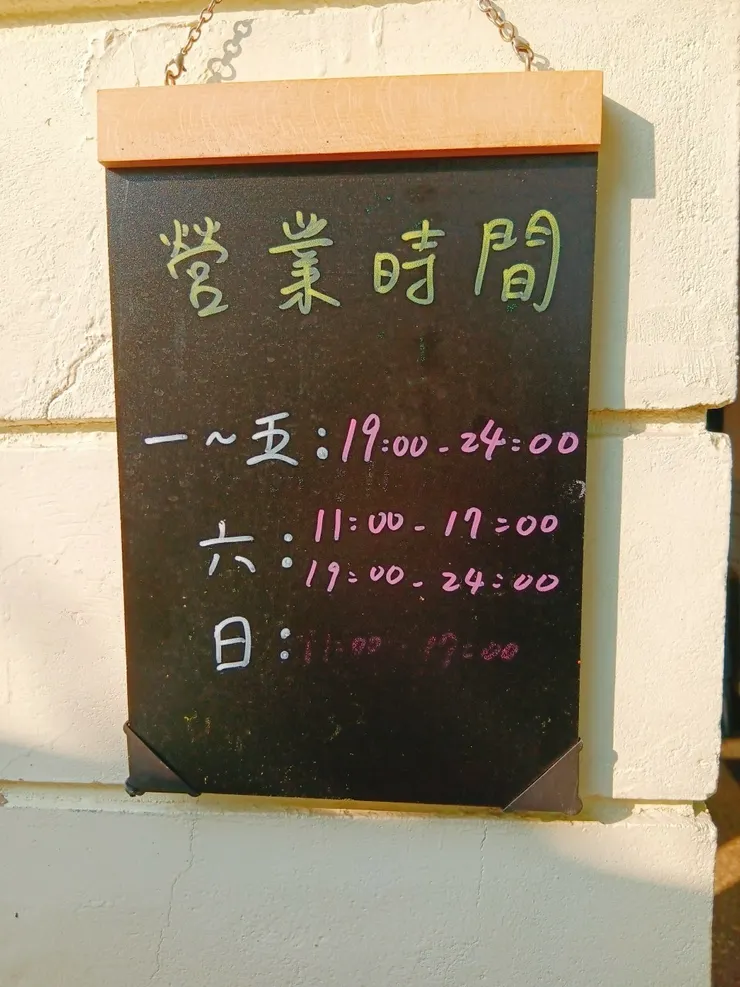 營業時間
一~五:19:00-24:00
六:11:00-17:00
19:00-24:00
日:11:00-17:00